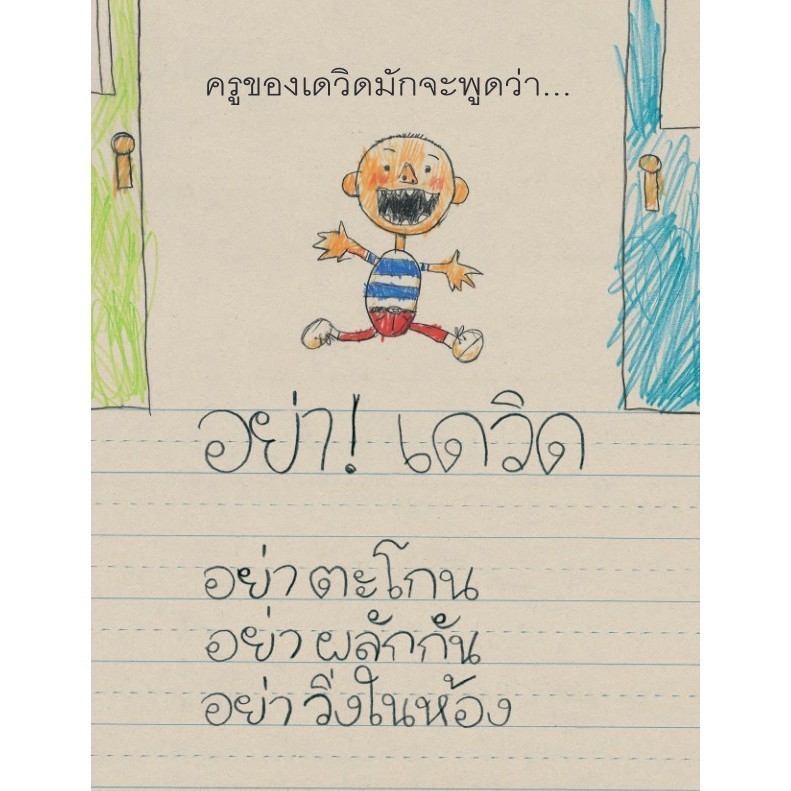 ครูของเดวิดมักจะพูดว่า...
อย่า! เดวิด
อย่า ตะโกน
อย่า ผลักกัน
อย่า วิ่งในห้อง